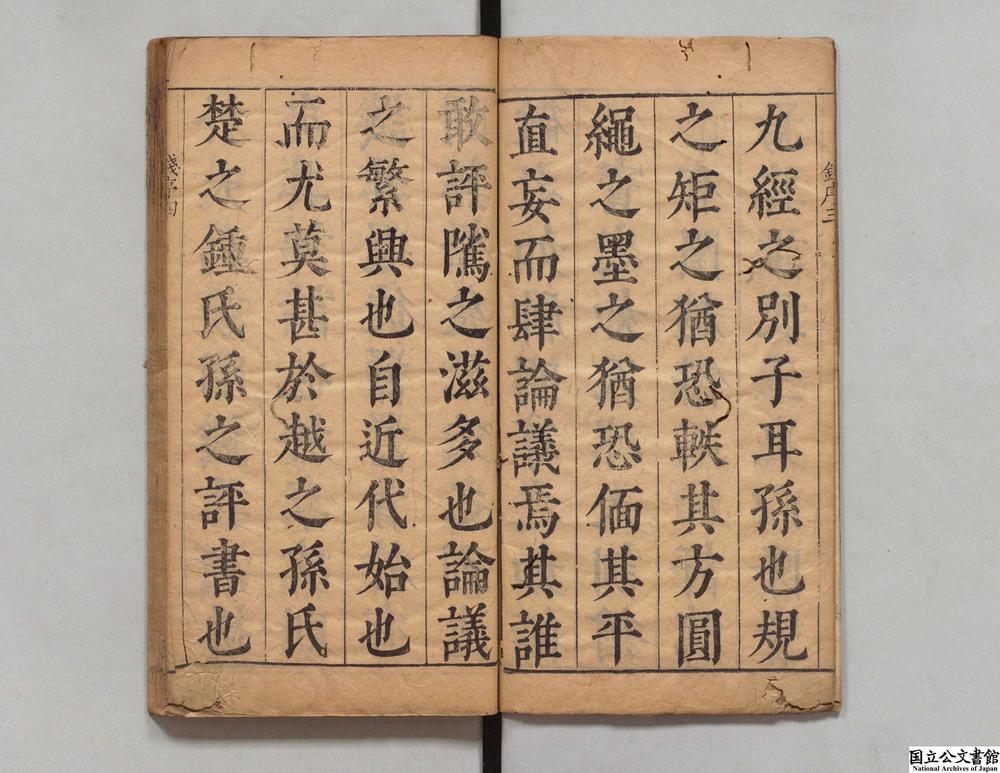 九經之別子耳孫也規
之矩之猶恐軼其方圓
繩之墨之猶恐偭其平
直妄而肆論議焉其誰
敢評隲之滋多也論議
之繁興也自近代始也
而尤莫甚於越之孫氏
楚之鍾氏孫之評書也
錢序三
錢序四
国立公文書館
National Archives of Japan